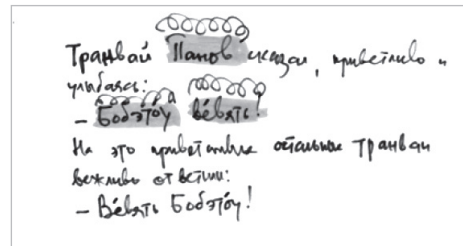 Транвай Панов сказал, приветливо
улыбаясь:
– Бобэто́у ве́вять!
На это приветствие остальные транваи
вежливо ответили:
– Ве́вять Бобэто́у!